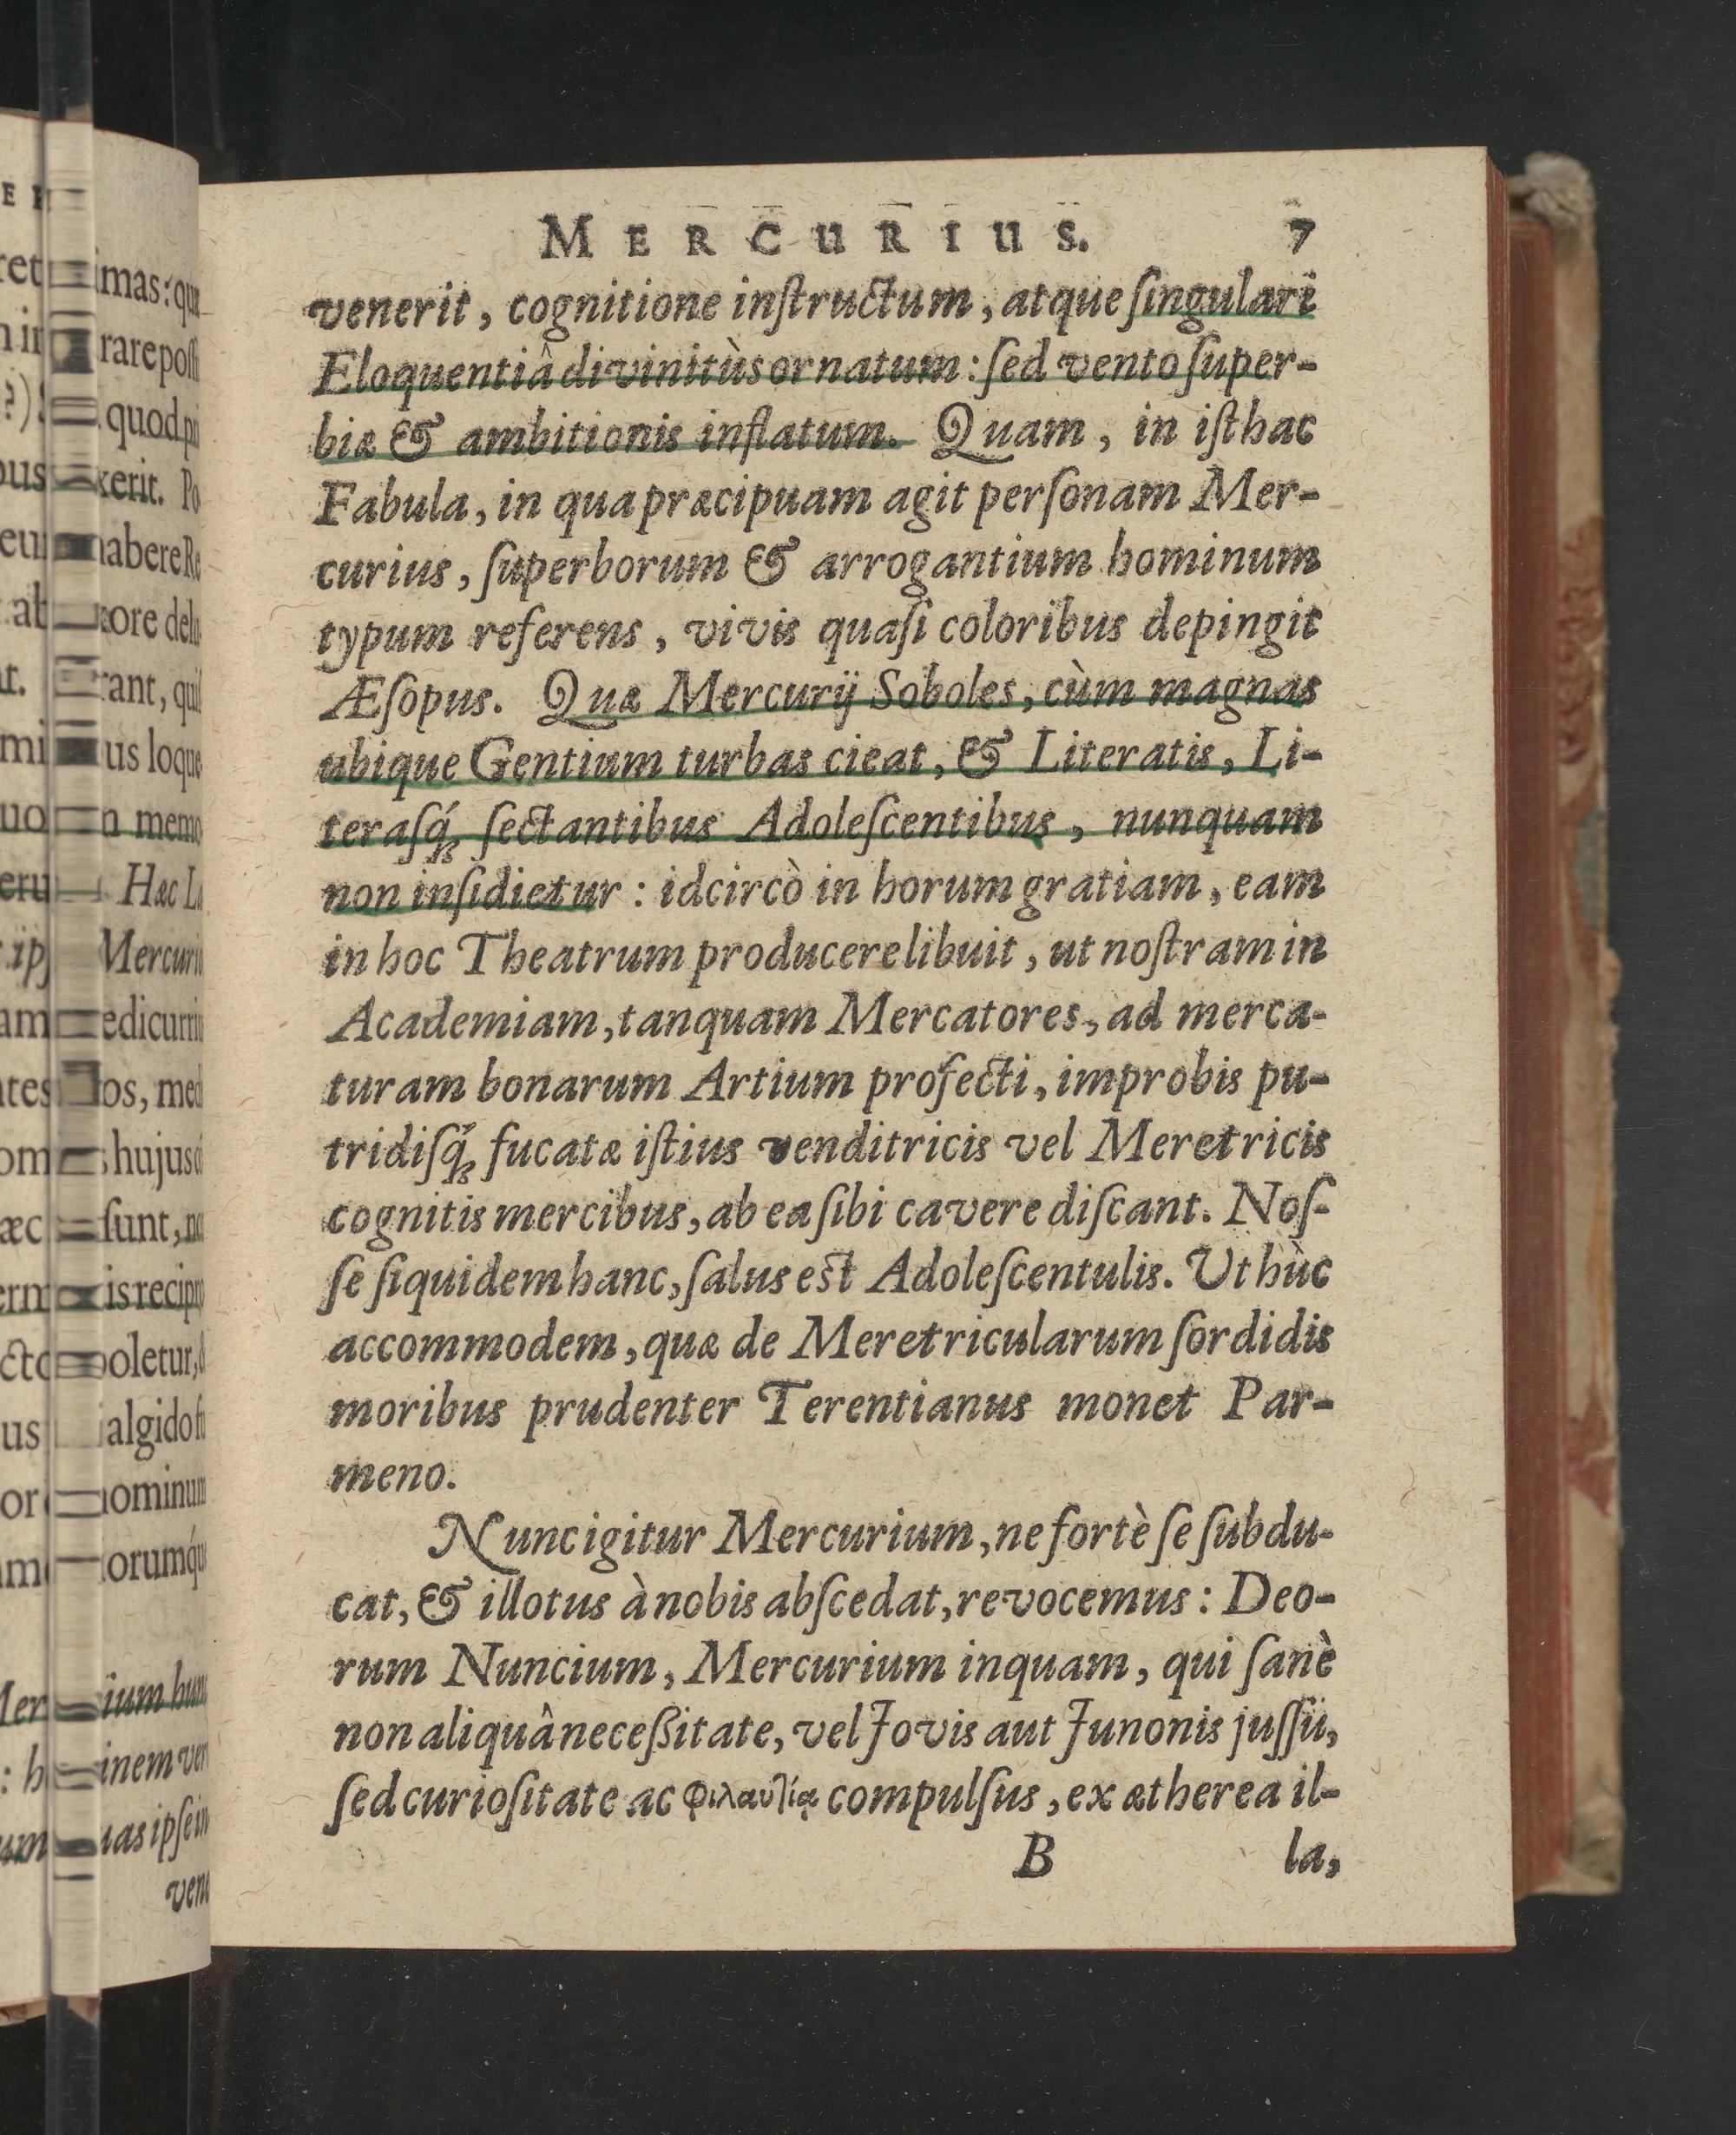 MERCURIUS. 7
venerit, cognitione inſtructum, atque ſingulari
Eloquentiâ divinitùs ornatum: ſed vento ſuper-
biæ & ambitionis inflatum. Quam, in iſthac
Fabula, in qua præcipuam agit perſonam Mer-
curius, ſuperborum & arrogantium hominum
typum referens, vivis quaſi coloribus depingit
Æſopus. Quæ Mercurij Soboles, cùm magnas
ubique Gentium turbas cieat, & Literatis, Li-
teraſq́; ſectantibus Adoleſcentibus, nunquam
non inſidietur: idcircò in horum gratiam, eam
in hoc Theatrum producere libuit, ut noſtram in
Academiam, tanquam Mercatores, ad merca-
turam bonarum Artium profecti, improbis pu-
tridiſq́; fucatæ iſtius venditricis vel Meretricis
cognitis mercibus, ab ea ſibi cavere diſcant. Noſ-
ſe ſiquidem hanc, ſalus eſt Adoleſcentulis. Ut hùc
accommodem, quæ de Meretricularum ſordidis
moribus prudenter Terentianus monet Par-
meno.
Nunc igitur Mercurium, ne fortè ſe ſubdu-
cat, & illotus à nobis abſcedat, revocemus: Deo-
rum Nuncium, Mercurium inquam, qui ſanè
non aliquâ neceßitate, vel Jovis aut Junonis juſſu,
ſed curioſitate ac φιλαυτίᾳ compulſus, ex ætherea il-
B la,